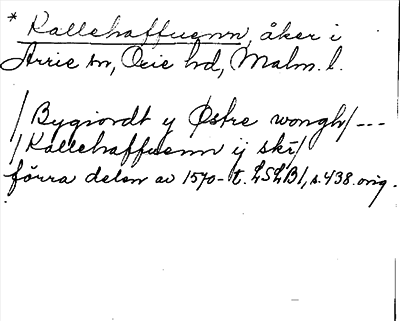 * Kallehaffuenn, åker i
Arrie sn, Oxie hd, Malm. l.
/Bygiordt y Østre wongh/ ---
/Kallehaffuenn ij skr/
förra delen av 1570-t. LSLB1, s. 438. orig.